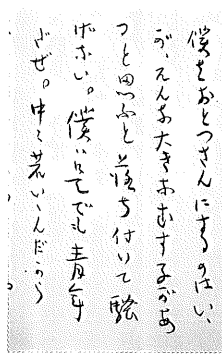 僕をおとつさんにするのはいゝ
が、そんな大きなむすめがあ
ると思ふと落ち付いて騒
げない。僕はこれでも青年
だぜ。中々若いんだから